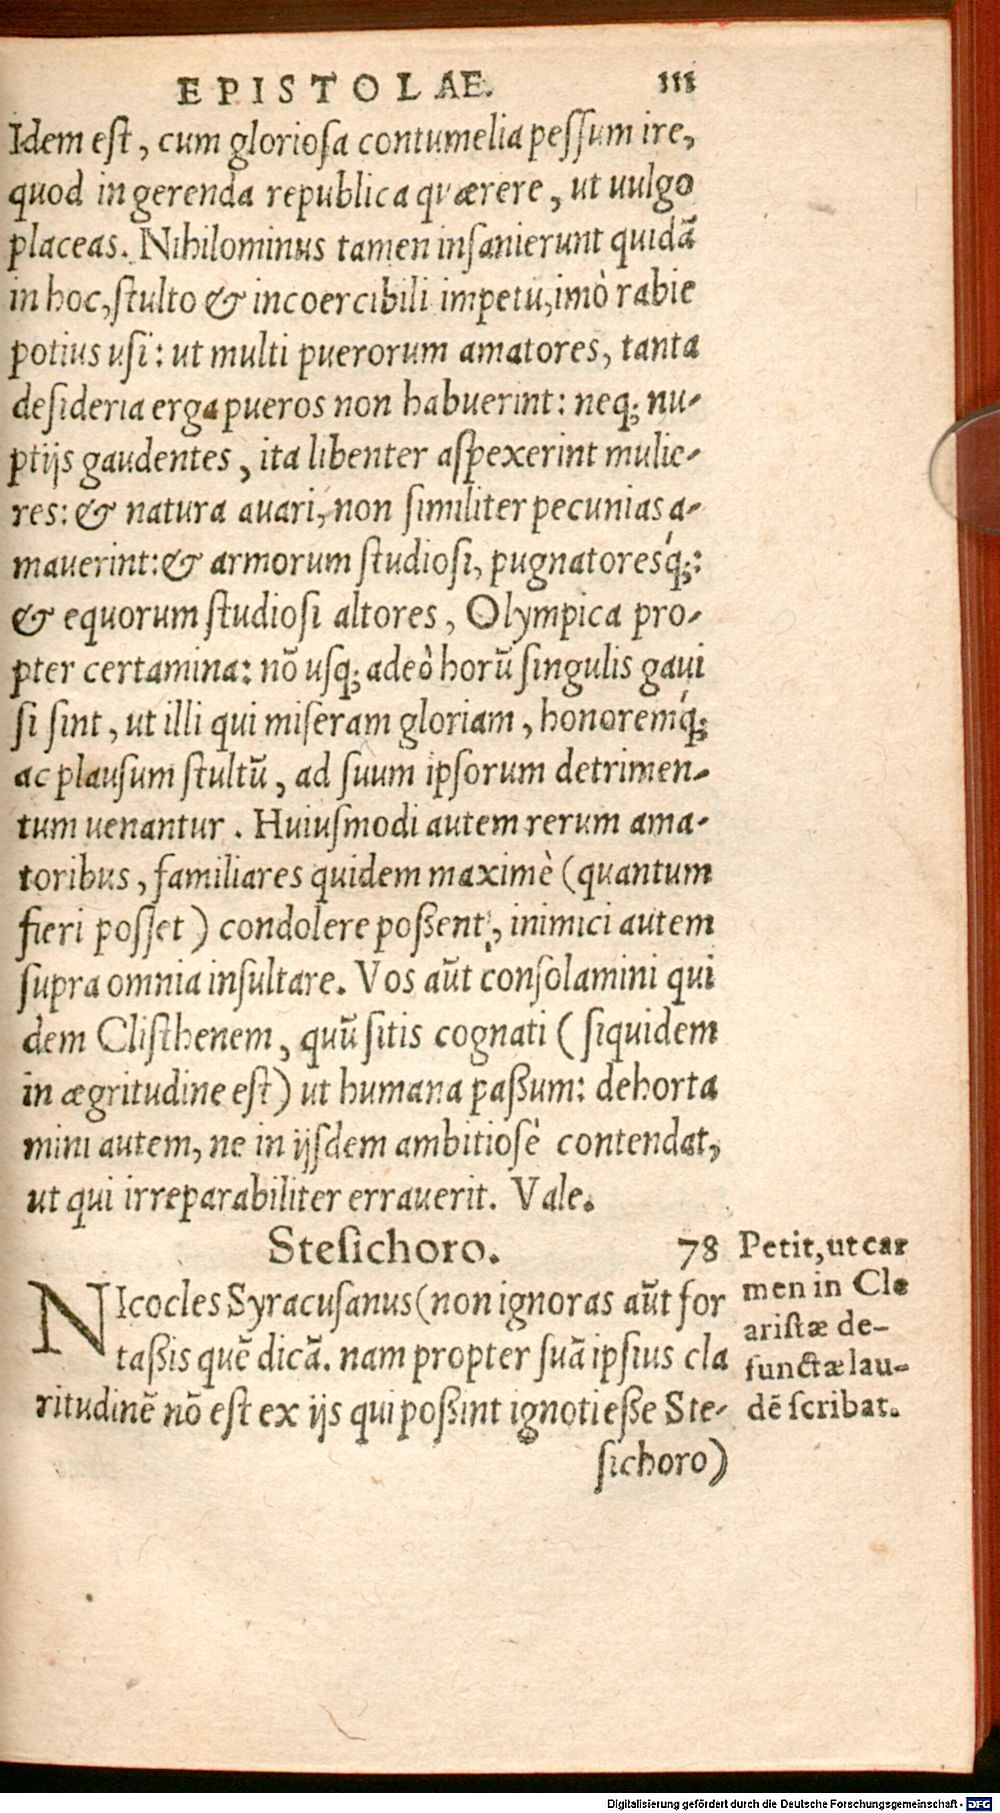 EPISTOLAE. 111
Idem eſt, cum glorioſa contumelia peſſum ire,
quod in gerenda republica quærere, ut uulgo
placeas. Nihilominus tamen inſanierunt quidā
in hoc, ſtulto & incoercibili impetu, imò rabie
potius uſi: ut multi puerorum amatores, tanta
deſideria erga pueros non habuerint: neq; nu-
ptijs gaudentes, ita libenter aſpexerint mulie-
res: & natura auari, non ſimiliter pecunias a-
mauerint: & armorum ſtudioſi, pugnatoresq́;:
& equorum ſtudioſi altores, Olympica pro-
pter certamina: nō uſq; adeò horū ſingulis gaui
ſi ſint, ut illi qui miſeram gloriam, honoremq́;
ac plauſum ſtultū, ad ſuum ipſorum detrimen-
tum uenantur. Huiuſmodi autem rerum ama-
toribus, familiares quidem maximè (quantum
fieri poſſet) condolere poßent, inimici autem
ſupra omnia inſultare. Vos aūt conſolamini qui
dem Cliſthenem, quū ſitis cognati (ſiquidem
in ægritudine eſt) ut humana paßum: dehorta
mini autem, ne in ijſdem ambitioſè contendat,
ut qui irreparabiliter errauerit. Vale.
Steſichoro. 78
NIcocles Syracuſanus (non ignoras aūt for
taßis quē dicā. nam propter ſuā ipſius cla
ritudinē nō eſt ex ijs qui poßint ignoti eße Ste-
ſichoro)
Petit, ut car
men in Cle
ariſtæ de-
functæ lau-
dē ſcribat.
Digitalisierung gefördert durch die Deutsche Forschungsgemeinschaft - DFG